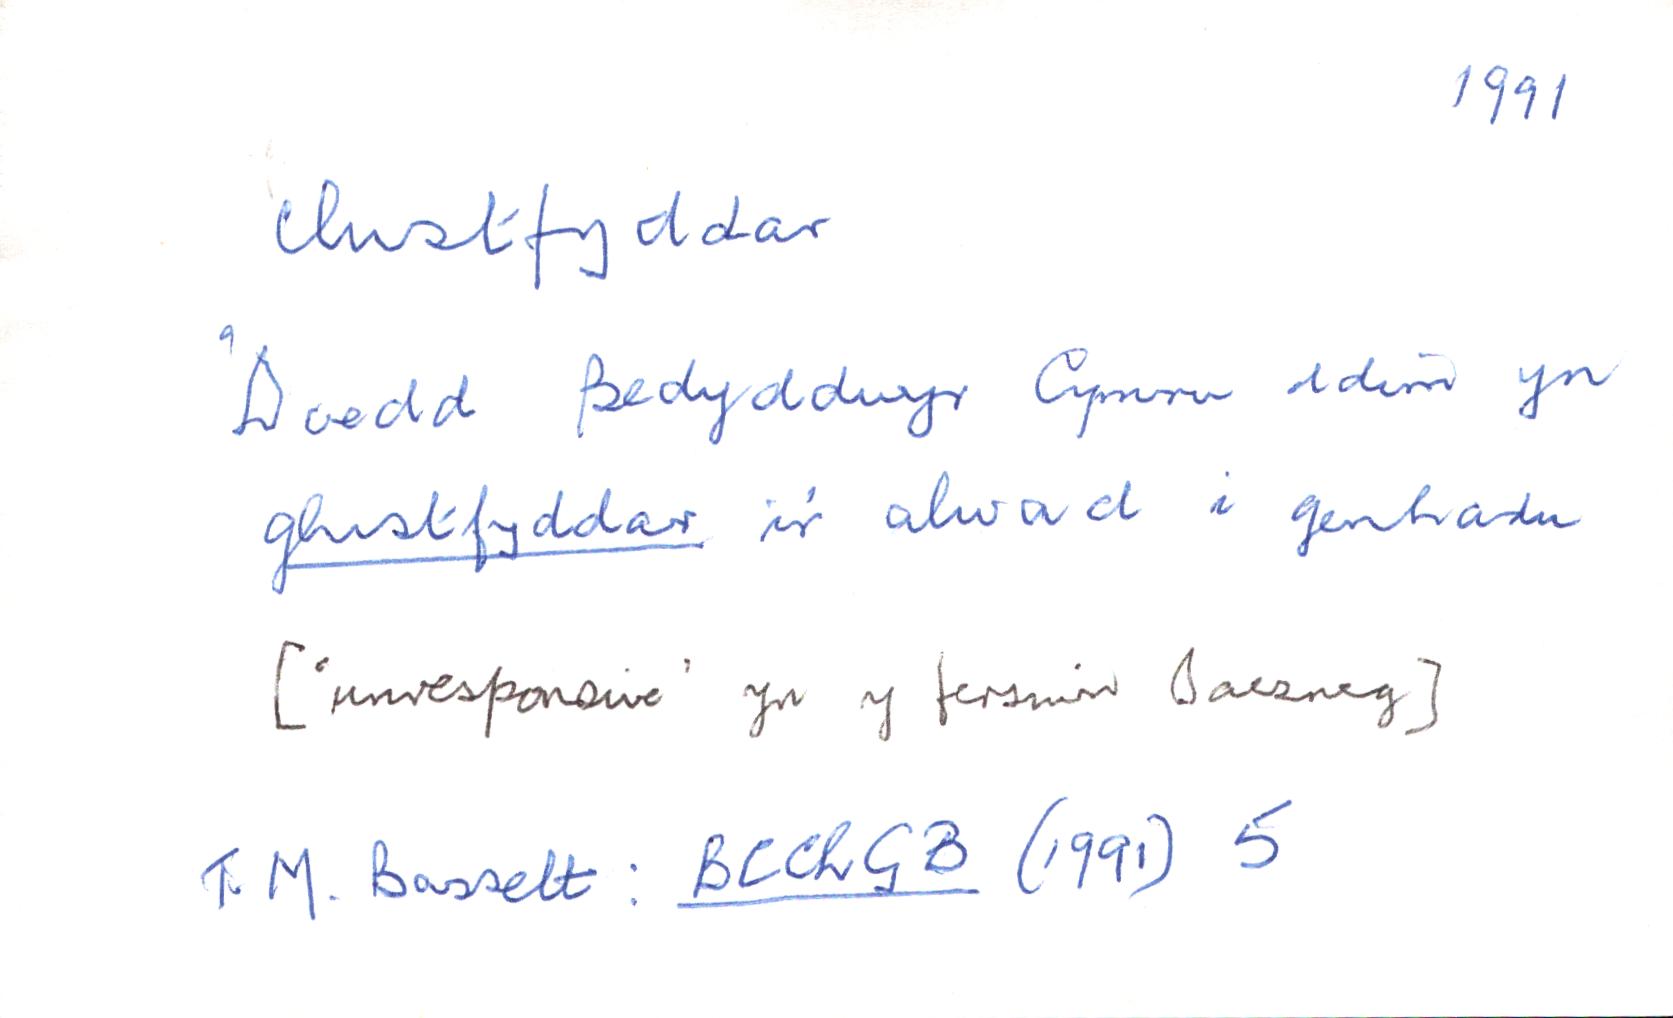 1991
clustfyddar
'Doedd Bedyddwyr Cymru ddim yn
glustfyddar i'r alwad i genhadu
['unresponsive' yn y fersiwn Saesneg]
T. M. Bassett: BCChGB (1991) 5